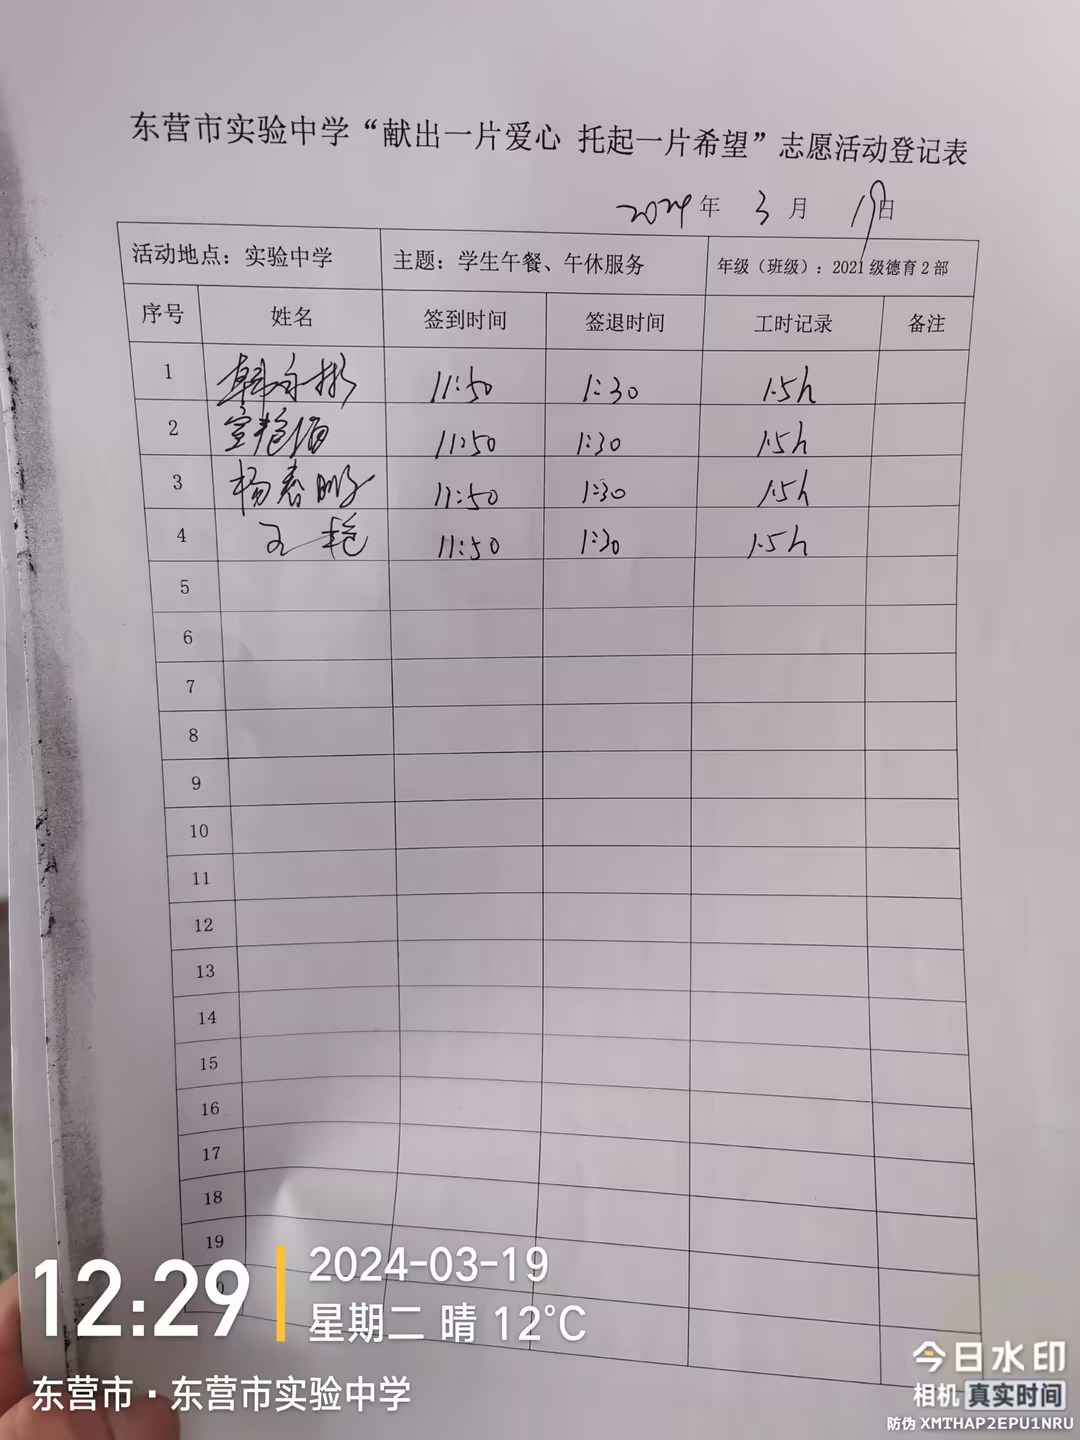 东营市实验中学“献出一片爱心 托起一片希望”志愿活动登记表
2024年 3月 19日
活动地点：实验中学 主题：学生午餐、午休服务 年级（班级）：2021级德育2部
序号 姓名 签到时间 签退时间 工时记录 备注
1 韩 11:50 1:30 1.5h
2 11:50 1:30 1.5h
3 杨春鹏 11:50 1:30 1.5h
4 王艳 11:50 1:30 1.5h
5
6
7
8
9
10
11
12
13
14
15
16
17
18
19
12:29
2024-03-19
星期二 晴 12°C
东营市·东营市实验中学
今日水印
相机 真实时间
防伪 XMTHAP2EPU1NRU